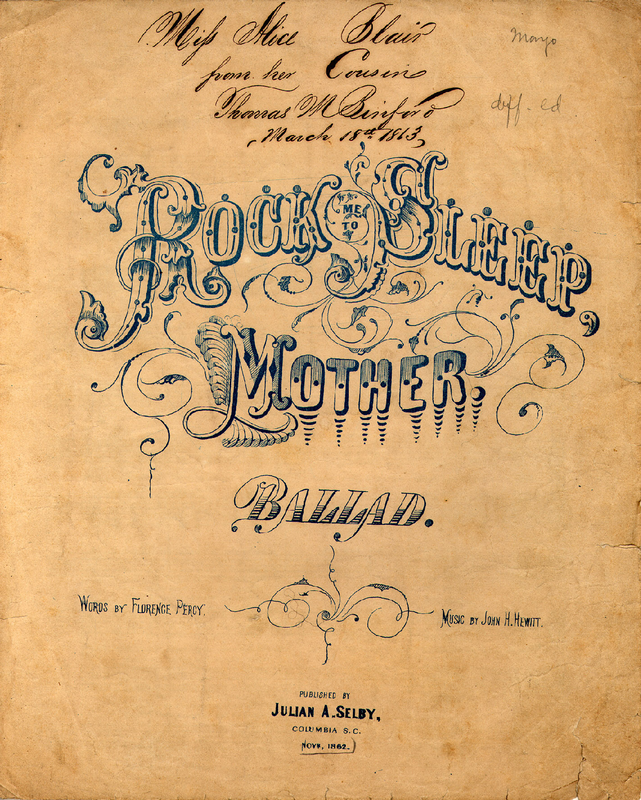 Miss Alice Blair
Mayo
from her Cousin
diff. ed
Thomas M Binford
March 18th 1863
ROCK ME TO SLEEP,
MOTHER.
BALLAD.
WORDS BY FLORENCE PERCY.
MUSIC BY JOHN H. HEWITT.
PUBLISHED BY
JULIAN A. SELBY,
COLUMBIA S.C.
NOVR, 1862.